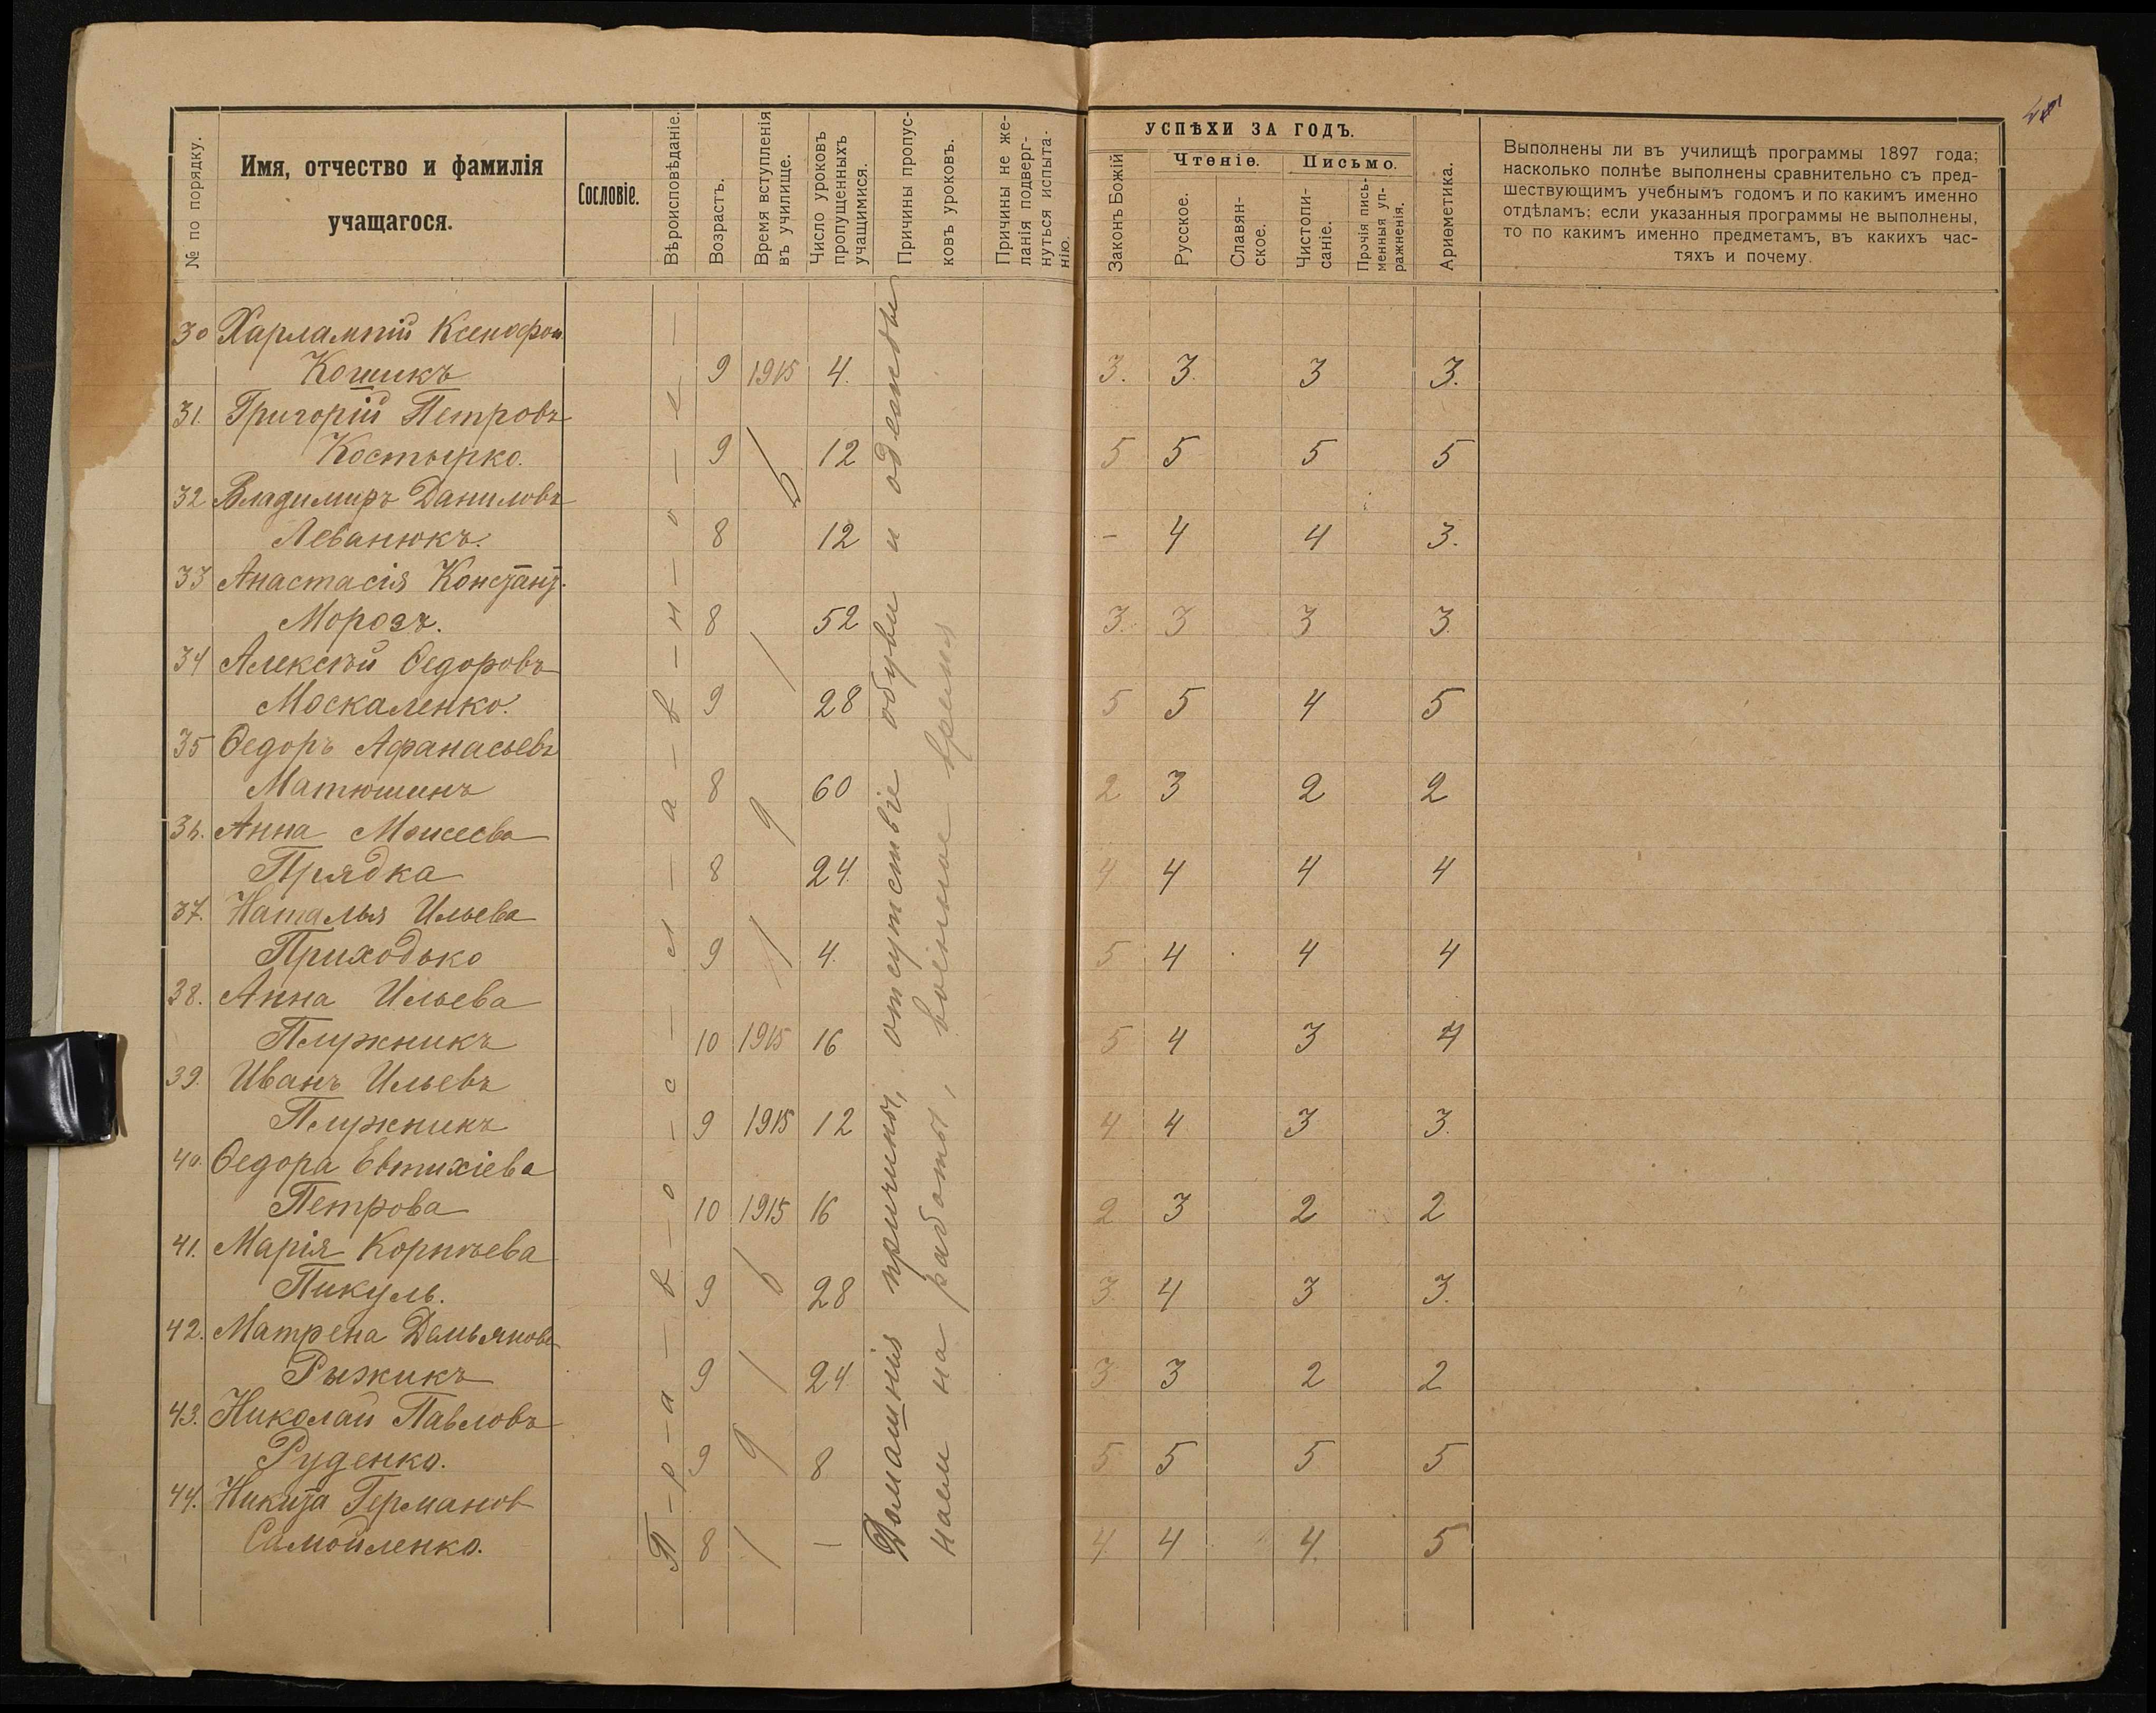 № по порядку.
Имя, отчество и фамилія
учащагося.
Сословіе.
Вѣроисповѣданіе.
Возрастъ.
Время вступленія
въ училище.
Число уроковъ
пропущенныхъ
учащимися.
Причины пропус-
ковъ уроковъ.
Причины не же-
ланія подверг-
нуться испыта-
нію.
УСПѢХИ ЗА ГОДЪ.
Законъ Божій
Чтеніе.
Русское.
Славян-
ское.
Письмо.
Чистопи-
саніе.
Прочія пись-
менныя уп-
ражненія.
Ариѳметика.
Выполнены ли въ училищѣ программы 1897 года;
насколько полнѣе выполнены сравнительно съ пред-
шествующимъ учебнымъ годомъ и по какимъ именно
отдѣламъ; если указанныя программы не выполнены,
то по какимъ именно предметамъ, въ какихъ час-
тяхъ и почему.
30 Харлампій Ксенофон.
Кошикъ 9 1915 4. 3. 3. 3 3.
31. Григорій Петровъ
Костырко. 9 12 5 5 5 5
32 Владимиръ Даниловъ
Леванюкъ. 8 12 - 4 4 3.
33 Анастасія Констант.
Морозъ. 8 52 3. 3 3 3.
34 Алексѣй Ѳедоровъ
Москаленко. 9 28 5 5 4 5
35 Ѳедоръ Афанасьевъ
Матюшинъ 8 60 2 3 2 2
36. Анна Моисеева
Прядка 8 24. 4 4 4 4
37. Наталья Ильева
Приходько 9 4. 5 4 4 4
38. Анна Ильева
Плужникъ 10 1915 16 5 4 3 4
39. Иванъ Ильевъ
Плужникъ 9 1915 12 4 4 3 3.
40. Ѳедора Евтихіева
Петрова 10 1915 16 2 3 2 2
41. Марія Корнѣева
Пикуль. 9 28 3. 4 3 3.
42. Матрена Демьянова
Рыжикъ 9 24 3 3 2 2
43. Николай Павловъ
Руденко. 9 8 5 5 5 5
44. Никита Германов
Самойленко. 8 — 4 4 4. 5
П - р - а - в - о - с - л - а - в - н - о - е -
1 9 1 6
1 9 1 6
Домашнія причины, отсутствіе обуви и одежды
наем на работы, военное время